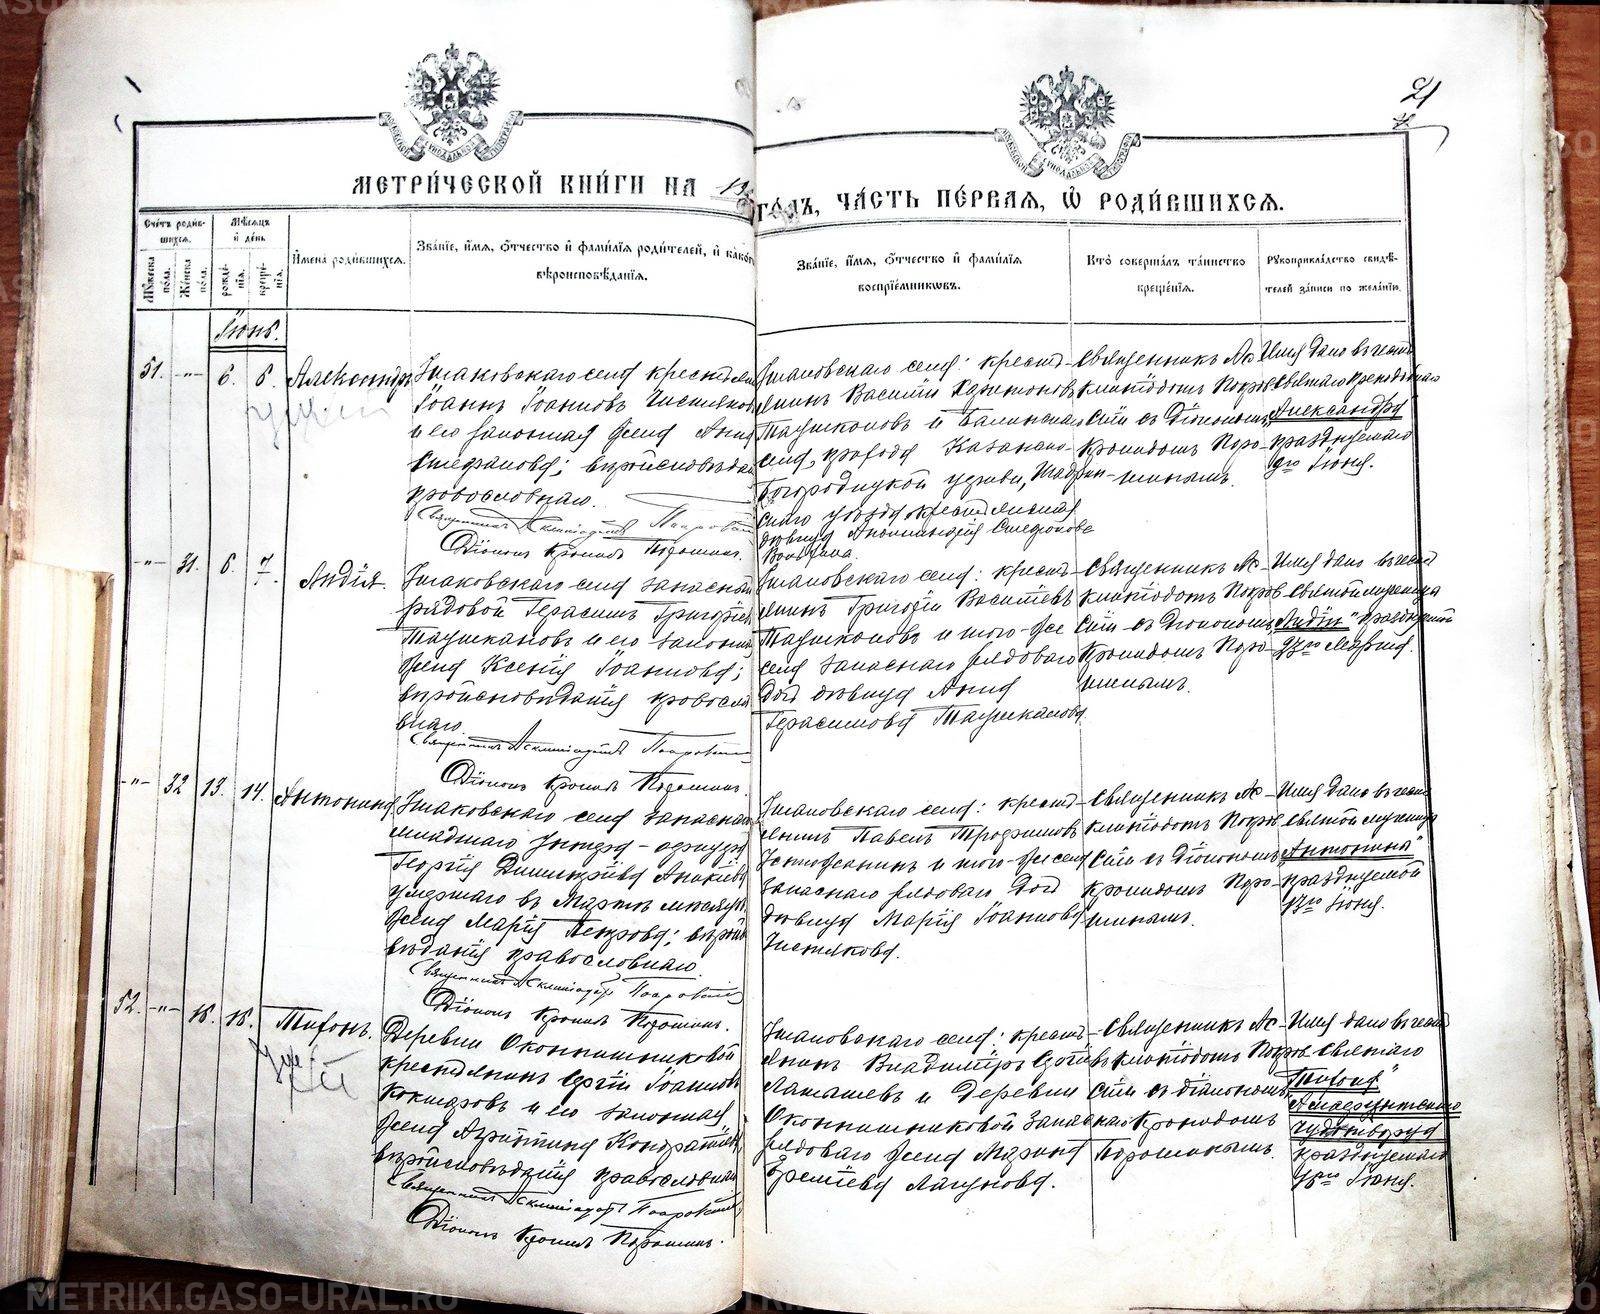 21
МЕТРИ́ЧЕСКОЙ КНИ́ГИ НА 19 ГО́ДЪ, ЧА́СТЬ ПЕ́РВАЯ, Ѡ҆ РОДИ́ВШИХСЯ.
Сче́тъ роди́в-
шихся.
Мѣ́сяцъ
и҆ де́нь
Мꙋ́жеска по́ла.
Же́нска по́ла.
рожде́-
нїя.
креще́-
нїя.
И҆мена̀ роди́вшихся.
Зва́нїе, и҆́мя, ѻ҆́тчество и҆ фами́лїя роди́телей, и҆ како́г
вѣроисповѣ́данїя.
Зва́нїе, и҆́мя, ѻ҆́тчество и҆ фами́лїя
воспрїе́мниковъ.
Кто̀ соверша́лъ та́инство
креще́нїя.
Рꙋкоприкла́дство свидѣ́-
телей за́писи по жела́нїю.
Іюнь.
51. -"- 6. 8. Александръ
Іоаннъ Іоанновъ Чистяков
и его законная жена Анна
Стефанова; вѣроисповѣдан
православнаго.
Священникъ Асклипіодотъ Покровскій
Діаконъ Кронидъ Порошинъ.
янинъ Василій
Таушкановъ и
села, прихода Казанско-
Богородицкой церкви, Шадрин-
скаго уѣзда крестьянская
дѣвица Стефанова
Священникъ Ас-
клипіодотъ Покров-
скій съ Діакономъ
Кронидомъ Поро-
шинымъ.
Имя дано въ честь
Святаго преподобнаго
Александра
празднуемаго
9го Іюня.
-"- 31. 6. 7. Лидія.
села запаснаго
рядовой Герасимъ Григорьев
Таушкановъ и его законная
жена Ксенія Іоаннова;
вѣроисповѣданія правосла
внаго.
Священникъ Асклипіодотъ Покровскій
Діаконъ Кронидъ Порошинъ.
села: кресть-
янинъ Григорій Васильевъ
Таушкановъ и того-же
села запаснаго рядоваго
дочь дѣвица Анна
Герасимова Таушканова.
Священникъ Ас-
клипіодотъ Покров-
скій съ Діакономъ
Кронидомъ Поро-
шинымъ.
Имя дано въ честь
Святой мученицы
"Лидіи" празднуемой
23го Марта.
-"- 32 13. 14. Антонина
села запаснаго
младшаго Унтеръ-офицера
Георгія Димитріева
умершаго въ Мартѣ мѣсяцѣ
жена Марія Петрова; вѣроис
вѣданія православнаго.
Священникъ Асклипіодотъ Покровскій
Діаконъ Кронидъ Порошинъ.
села: кресть-
янинъ Павелъ Трофимовъ
и того-же села
запаснаго рядоваго дочь
дѣвица Марія Іоаннова
Чистякова.
Священникъ Ас-
клипіодотъ Покров-
скій съ Діакономъ
Кронидомъ Поро-
шинымъ.
Имя дано въ честь
Святой мученицы
"Антонины"
празднуемой
13го Іюня.
52. -"- 16. 16. Тихонъ.
Деревни Оконишниковой
крестьянинъ Сергій Іоанновъ
Кокшаровъ и его законная
жена Агриппина Кондратіев
вѣроисповѣданія православнаго
Священникъ Асклипіодотъ Покровскій
Діаконъ Кронидъ Порошинъ.
села: кресть-
янинъ Владиміръ
и Деревни
Оконишниковой запаснаго
рядоваго жена Марина
Лагунова.
Священникъ Ас-
клипіодотъ Покров-
скій съ діакономъ
Кронидомъ
Порошинымъ.
Имя дано въ честь
Святаго
"Тихона"
Амафунтскаго
чудотворца
празднуемаго
16го Іюня.
METRIKI.GASO-URAL.RU